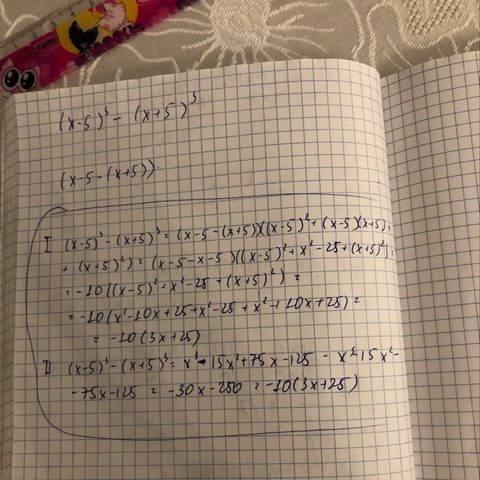 (x-5)³ - (x+5)³
(x-5-(x+5))
I (x-5)³-(x+5)³=(x-5-(x+5)((x-5)²+(x-5)(x+5)+
+(x+5)²)=(x-5-x-5)((x-5)²+x²-25+(x+5)²)=
=-10((x-5)²+x²-25+(x+5)²)=
=-10(x²-10x+25+x²-25+x²+10x+25)=
=-10(3x+25)
II (x+5)³-(x+5)³=x³-15x²+75x-125-x³-15x²-
-75x-125=-30x-250=-10(3x+25)